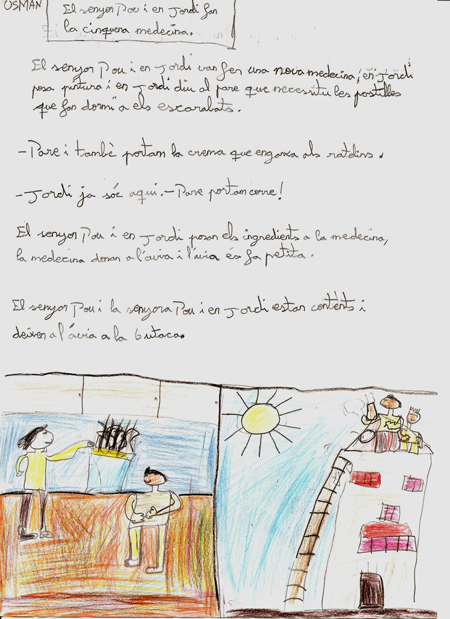 OSMAN
El senyor Pou i en Jordi fan
la cinquena medecina.
El senyor Pou i en Jordi van fer una nova medecina, en Jordi
posa pintura i en Jordi diu al pare que necessitu les pastilles
que fan dormi a els escarabats.
-Pare i també portam la crema que enganxa als ratolins.
-Jordi ja sóc aqui.-Pare portam corre!
El senyor Pou i en Jordi posan els ingredients a la medecina,
la medecina donan a l'àvia i l'àvia és fa petita.
El senyor Pou i la senyora Pou i en Jordi estan contents i
deixen a l'àvia a la butaca.